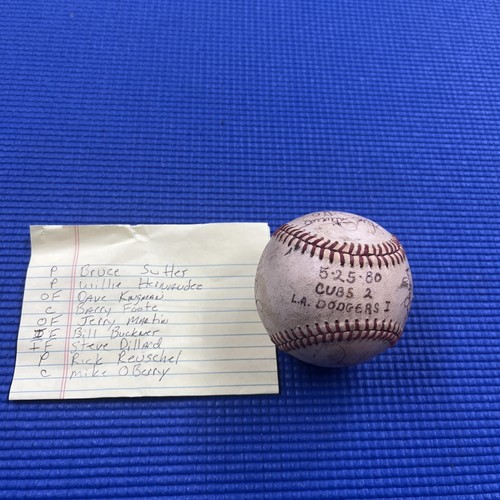 P Bruce Sutter
P Willie Hernandez
OF Dave Kingman
C Barry Foote
OF Jerry Martin
IF Bill Buckner
IF Steve Dillard
P Rick Reuschel
C Mike O'Berry
5-25-80
CUBS 2
L.A. DODGERS 1